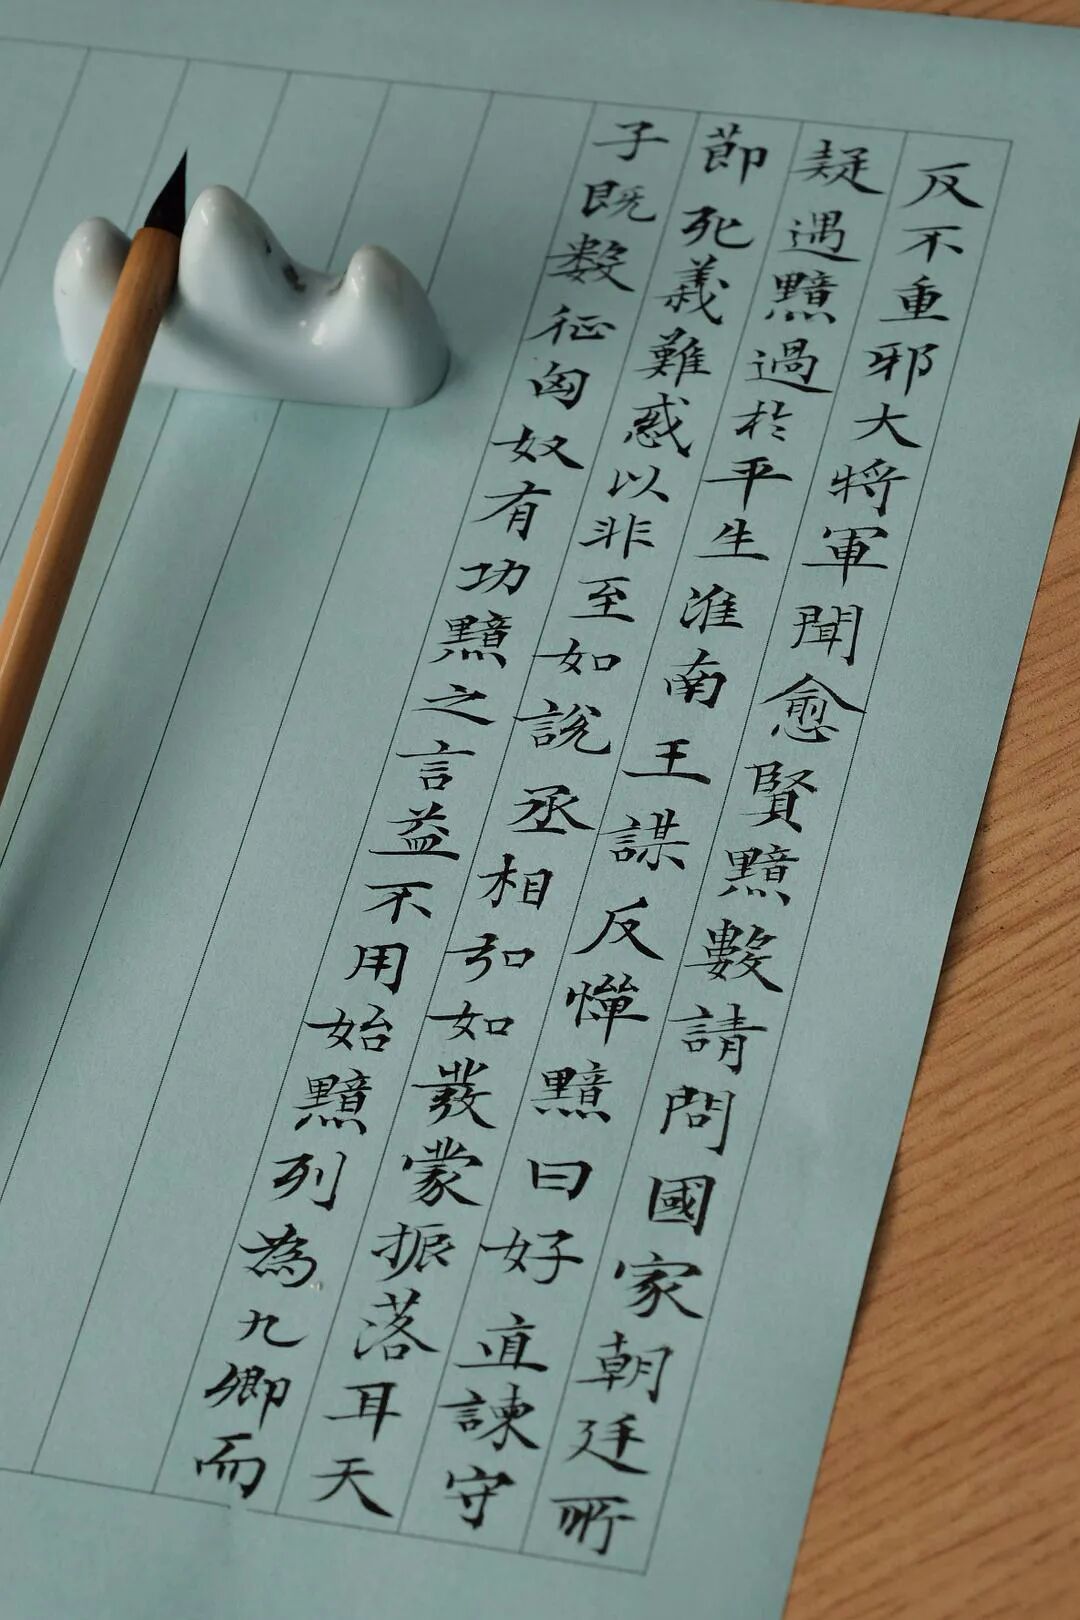 反不重邪大将軍聞愈賢黯數請問國家朝廷所
疑遇黯過於平生淮南王謀反憚黯曰好直諫守
節死義難惑以非至如說丞相弘如發蒙振落耳天
子既数征匈奴有功黯之言益不用始黯列為九卿而